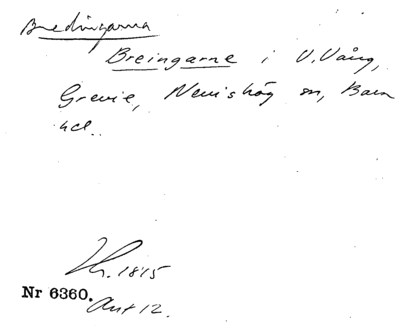 Bredingarna
Breingarne i V. Vång,
Grevie, Nevishög sn, Bara
hd.
Th. 1815
Nr 6360.
Ant 12.